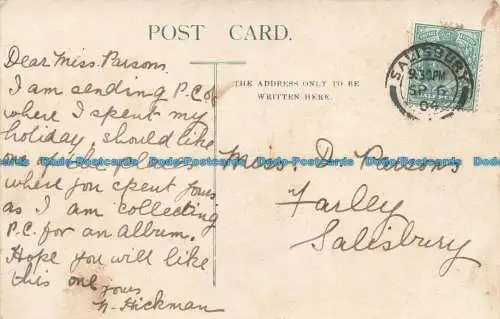 POST CARD.
Dear Miss. Parsons.
I am sending P.C of
where I spent my
holiday, should like
one
where you spent yours
as I am collecting
P.C. for an album.
Hope you will like
this one
yours
N. Hickman
THE ADDRESS ONLY TO BE
WRITTEN HERE.
SALISBURY
9.30PM
SP 6
04
Miss. D Parsons
Farley
Salisbury
Dodo-Postcards Dodo-Postcards Dodo-Postcards Dodo-Postcards Dodo-Postcards